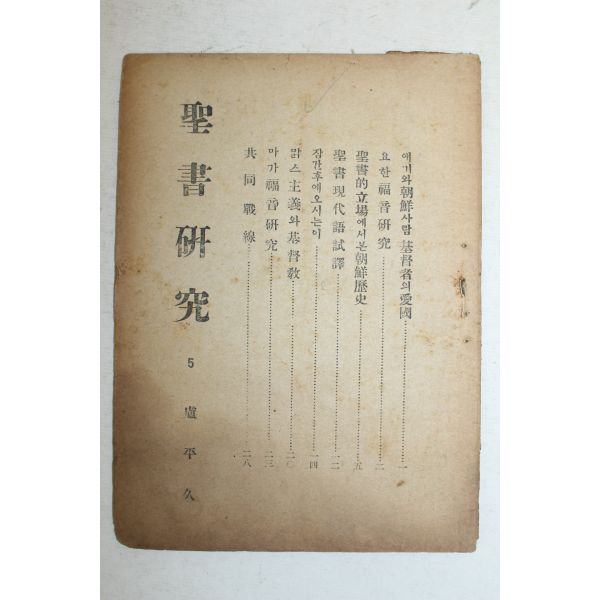 얘기와朝鮮사람 基督者의愛國……一
요한福音硏究……二
聖書的立場에서본朝鮮歷史……五
聖書現代語試譯……一二
잠간후에오시는이……一四
맑스主義와基督敎……二〇
마가福音硏究……二三
共同戰線……二八
聖書硏究
5
盧平久